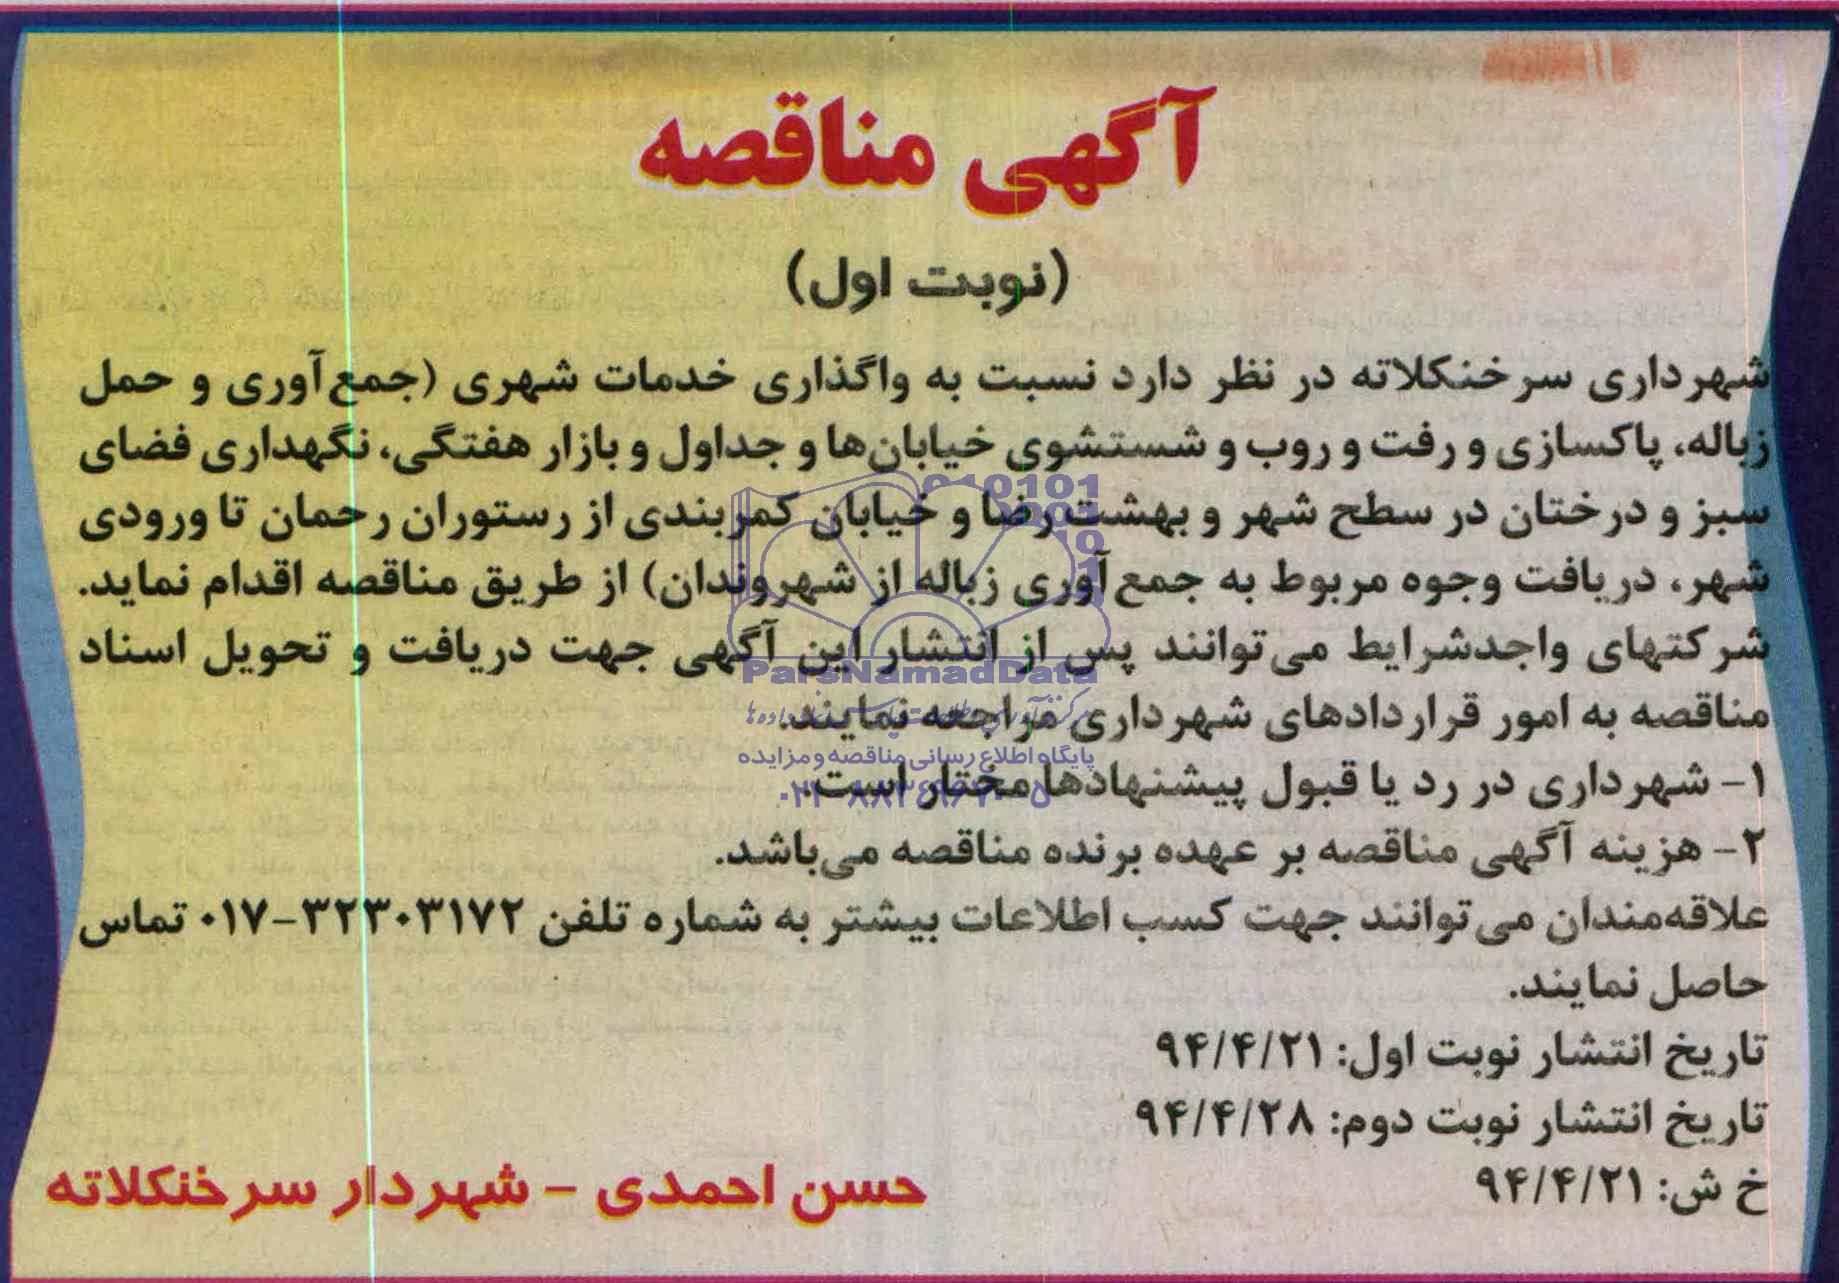 آگهی مناقصه
(نوبت اول)
شهرداری سرخنکلاته در نظر دارد نسبت به واگذاری خدمات شهری (جمع‌آوری و حمل
زباله، پاکسازی و رفت و روب و شستشوی خیابان‌ها و جداول و بازار هفتگی، نگهداری فضای
سبز و درختان در سطح شهر و بهشت‌رضا و خیابان کمربندی از رستوران رحمان تا ورودی
شهر، دریافت وجوه مربوط به جمع‌آوری زباله از شهروندان) از طریق مناقصه اقدام نماید.
شرکتهای واجدشرایط می‌توانند پس از انتشار این آگهی جهت دریافت و تحویل اسناد
مناقصه به امور قراردادهای شهرداری مراجعه نمایند.
۱- شهرداری در رد یا قبول پیشنهادها مختار است.
۲- هزینه آگهی مناقصه بر عهده برنده مناقصه می‌باشد.
علاقه‌مندان می‌توانند جهت کسب اطلاعات بیشتر به شماره تلفن ۳۲۳۰۳۱۷۲-۰۱۷ تماس
حاصل نمایند.
تاریخ انتشار نوبت اول: ۹۴/۴/۲۱
تاریخ انتشار نوبت دوم: ۹۴/۴/۲۸
خ ش: ۹۴/۴/۲۱
حسن احمدی - شهردار سرخنکلاته
ParsNamadData
پایگاه اطلاع رسانی مناقصه و مزایده